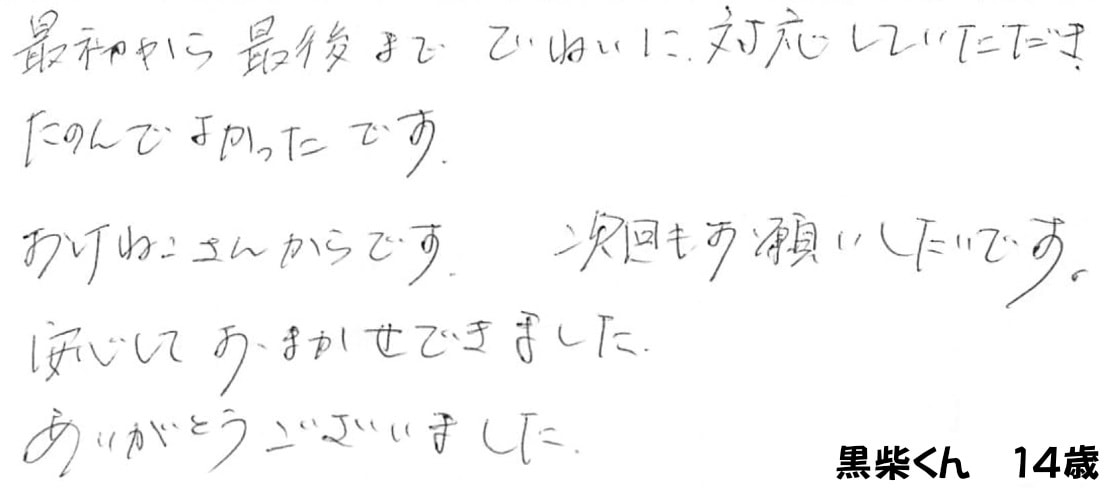 最初から最後まで ていねいに.対応していただき
たのんでよかったです.
おけねこさんからです. 次回もお願いしたいです。
安心しておまかせできました.
ありがとうございました.
黒柴くん 14歳